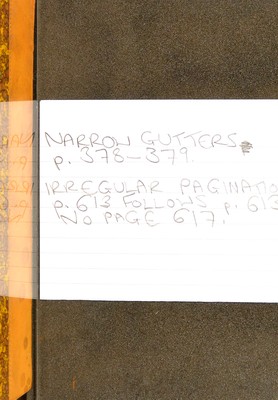 NARROW GUTTERS.
p. 378-379.
IRREGULAR PAGINATIO
p. 613 FOLLOWS p. 613
NO PAGE 617.